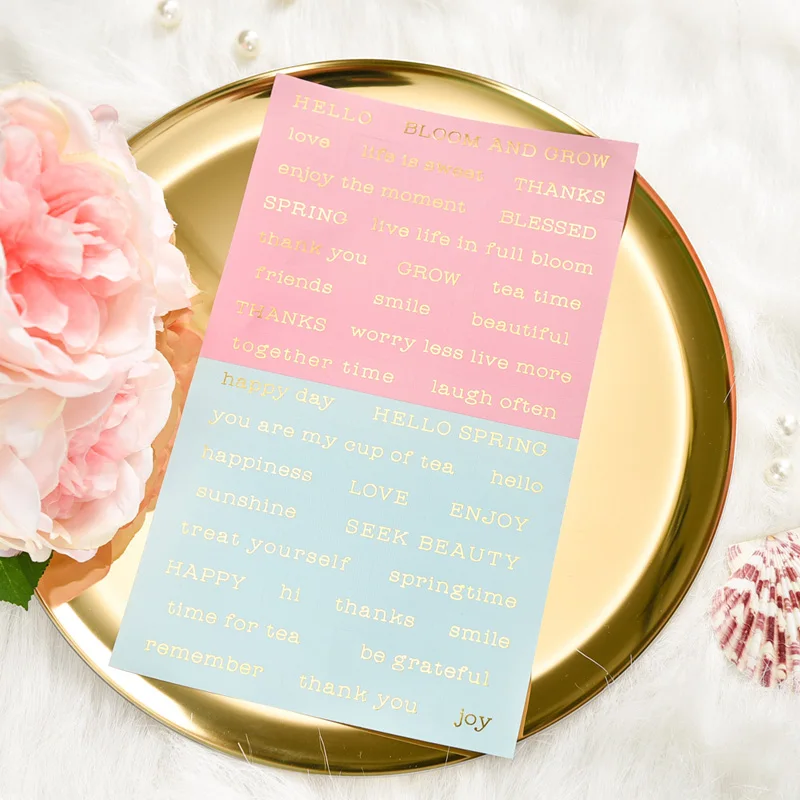 HELLO BLOOM AND GROW
love life is sweet THANKS
enjoy the moment BLESSED
SPRING live life in full bloom
thank you GROW tea time
friends smile beautiful
THANKS worry less live more
together time laugh often
happy day HELLO SPRING
you are my cup of tea hello
happiness LOVE ENJOY
sunshine SEEK BEAUTY
treat yourself springtime
HAPPY hi thanks smile
time for tea be grateful
remember thank you joy